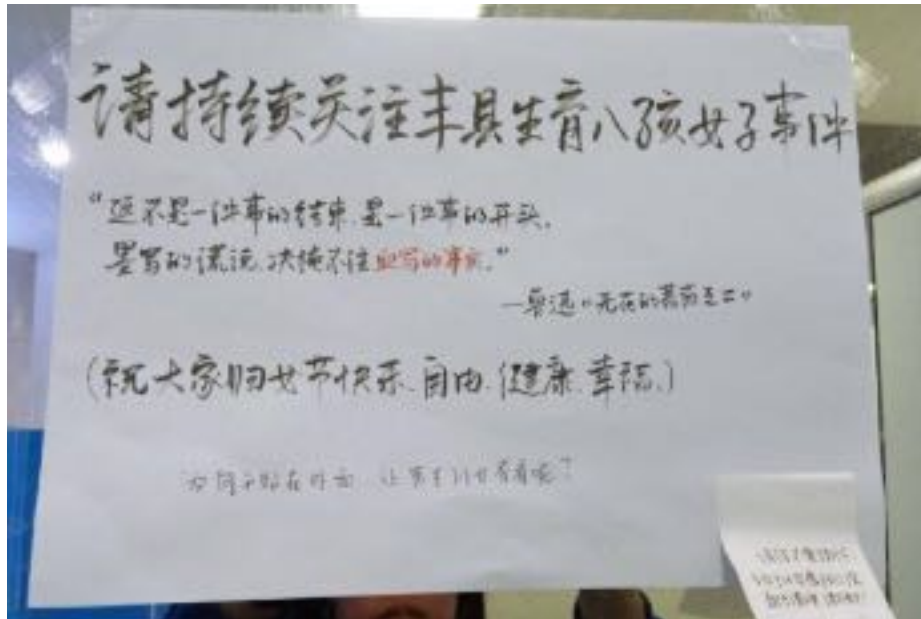 请持续关注丰县生育八孩女子事件
“这不是一件事的结束,是一件事的开头。
墨写的谎说,决掩不住血写的事实。”
—鲁迅《无花的蔷薇之二》
(祝大家妇女节快乐、自由、健康、幸福。)
为何不贴在外面,让男生们也看看呢?